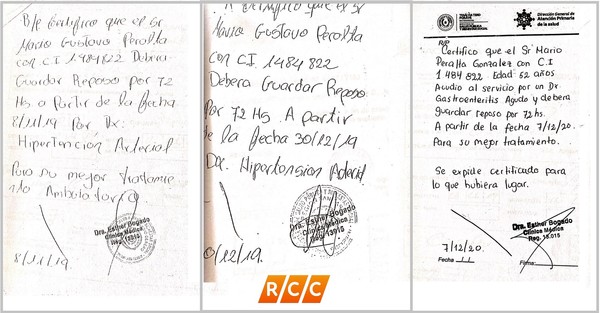 R/p Certifico que el Sr
Mario Gustavo Peralta
con C.I 1484822 Debera
Guardar Reposo por 72
Hs a Partir de la fecha
8/11/19 Por Dx:
Hipertención Arterial
Para su mejor tratamie
nto Ambulatorio
Dra. Esther Bogado
Clínica Médica
Reg. 13015
8/11/19.
Certifico que el Sr
Mario Gustavo Peralta
con C.I 1484822
Debera Guardar Reposo
Por 72 Hs. A Partir
de la fecha 30/12/19
Dx. Hipertension Arterial.
Dra. Esther Bogado
Clínica Médica
Reg. 13015
0/12/19.
Dirección General de
Atención Primaria
de la salud
R/p
Certifico que el Sr Mario
Peralta Gonzalez con C.I
1484822 Edad: 52 años
Acudio al servicio por un Dx
Gastroenteritis Agudo y debera
guardar reposo por 72hs.
A partir de la fecha 7/12/20.
Para su mejor tratamiento.
Se expide certificado para
lo que hubiera lugar.
Dra. Esther Bogado
Clínica Médica
Reg. 13.015
7/12/20.
Fecha
Firma
RCC